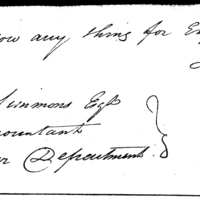 ow any thing for E
Simmons Esqr
ccountant
r Department